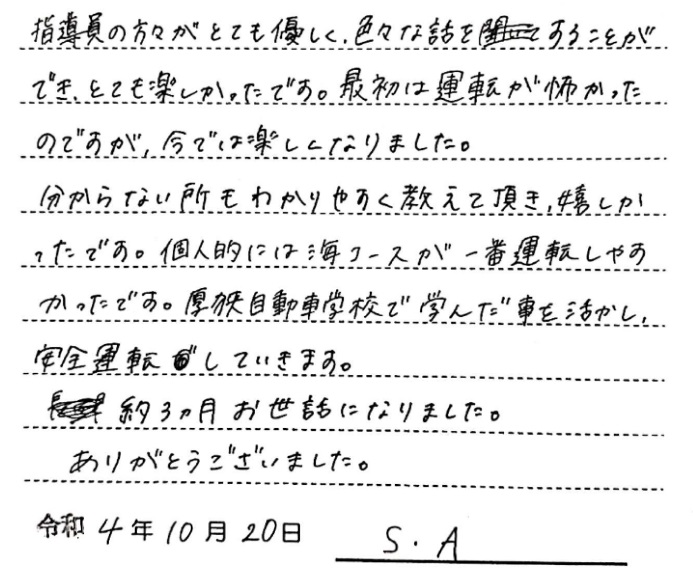 指導員の方々がとても優しく、色々な話をすることが
でき、とても楽しかったです。最初は運転が怖かった
のですが、今では楽しくなりました。
分からない所もわかりやすく教えて頂き、嬉しか
ったです。個人的には海コースが一番運転しやす
かったです。厚狭自動車学校で学んだ事を活かし、
安全運転していきます。
約3ヵ月お世話になりました。
ありがとうございました。
令和4年10月20日 S.A